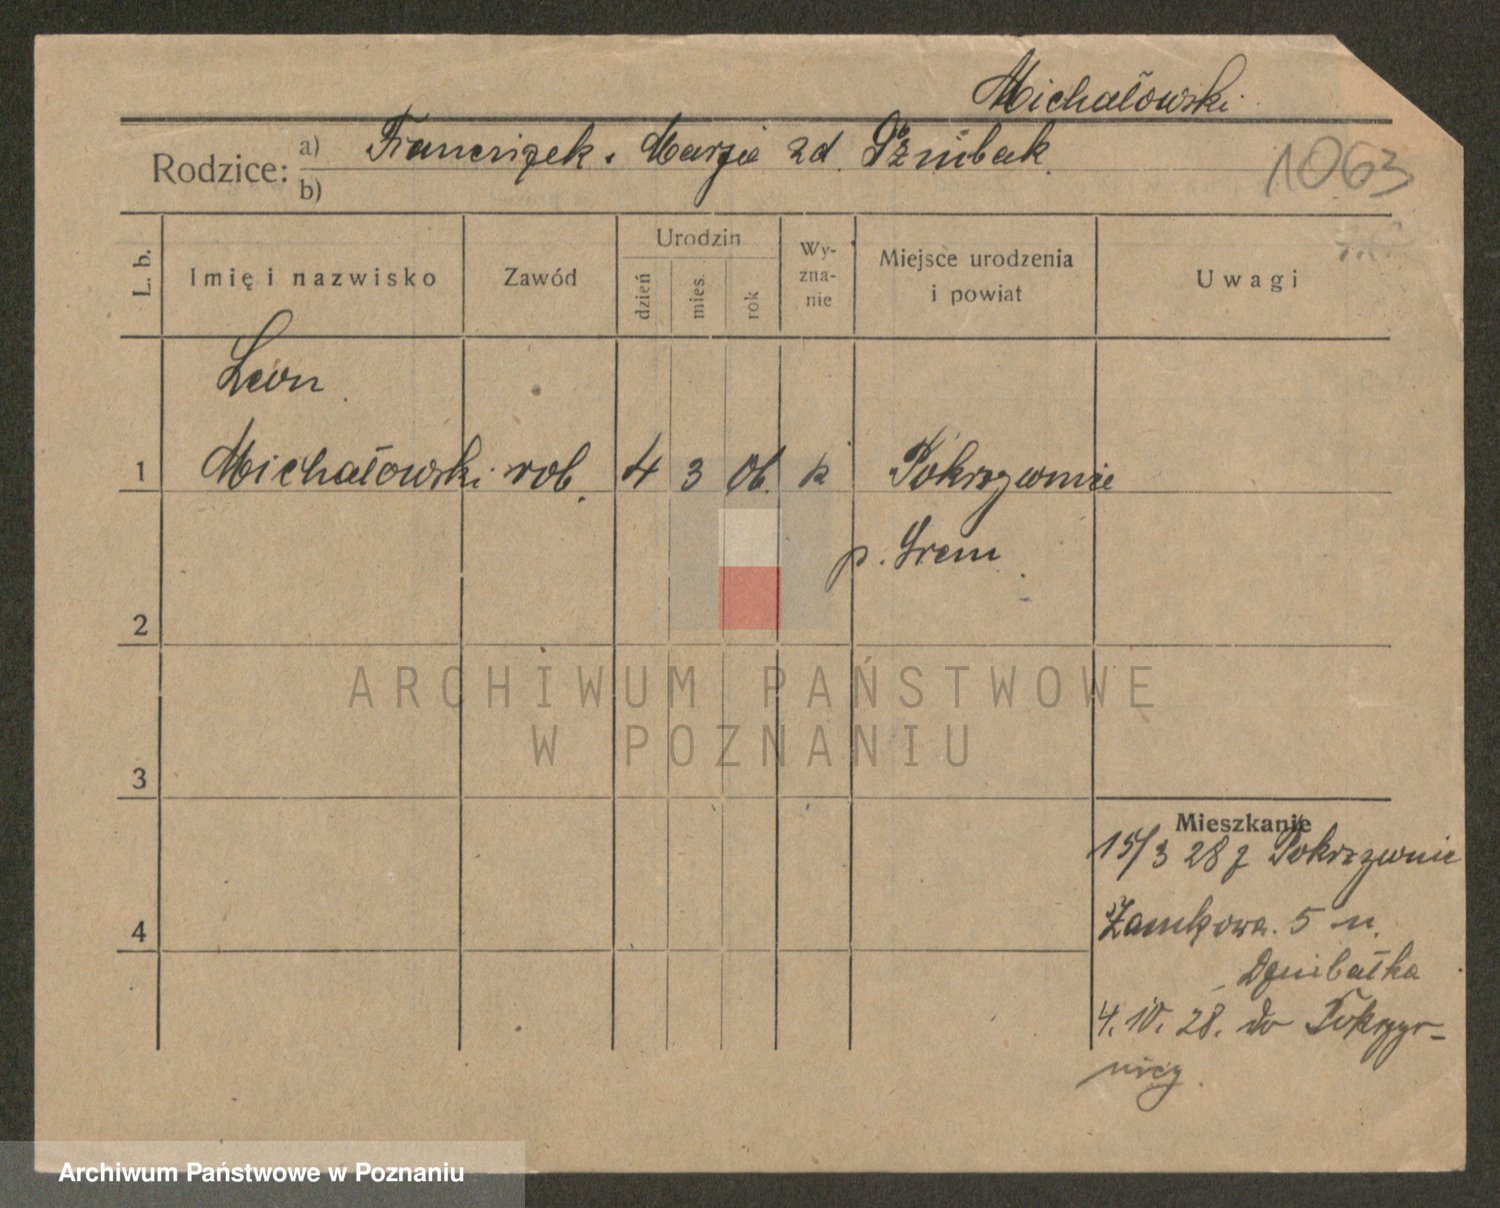 Michałowski
Rodzice: a) Franciszek. Marja zd.
b)
1063
L. b. Imię i nazwisko Zawód Urodzin dzień mies. rok Wy-zna-nie Miejsce urodzenia i powiat Uwagi
Leon
1 Michałowski rob. 4 3 06. k Pokrzywnie
p. Śrem
2
ARCHIWUM PAŃSTWOWE
W POZNANIU
3
Mieszkanie
15/3 28 z Pokrzywnie
Zamkowa. 5 u.
4
4. 10. 28. do Pokrzyw-
nicy.
Archiwum Państwowe w Poznaniu